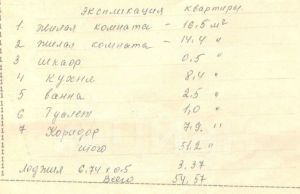 экспликация квартиры.
1 жилая комната - 16.5 м²
2 жилая комната - 14.4 "
3 шкаф 0.5 "
4 кухня 8.4 "
5 ванна 2.5 "
6 туалет 1,0 "
7 коридор 7.9 "
итого 51.2 "
лоджия 6.74 х 0.5 3.37
Всего 54,57